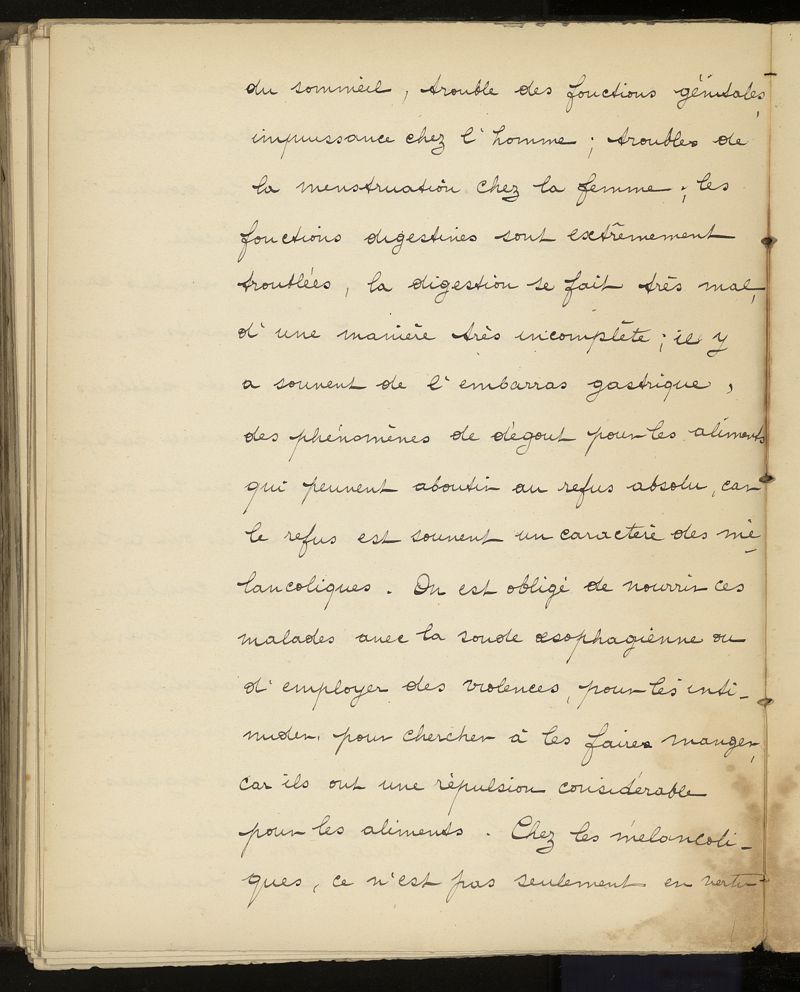 du sommeil, trouble des fonctions génitales,
impuissance chez l'homme ; troubles de
la menstruation chez la femme ; les
fonctions digestives sont extrêmement
troublées, la digestion se fait très mal,
d'une manière très incomplète ; il y
a souvent de l'embarras gastrique,
des phénomènes de dégout pour les aliments
qui peuvent aboutir au refus absolu, car
le refus est souvent un caractère des mé-
lancoliques. On est obligé de nourrir ces
malades avec la sonde œsophagienne ou
d'employer des violences, pour les inti-
mider, pour chercher à les faires manger,
car ils ont une répulsion considérable
pour les aliments. Chez les mélancoli-
ques, ce n'est pas seulement en vertu